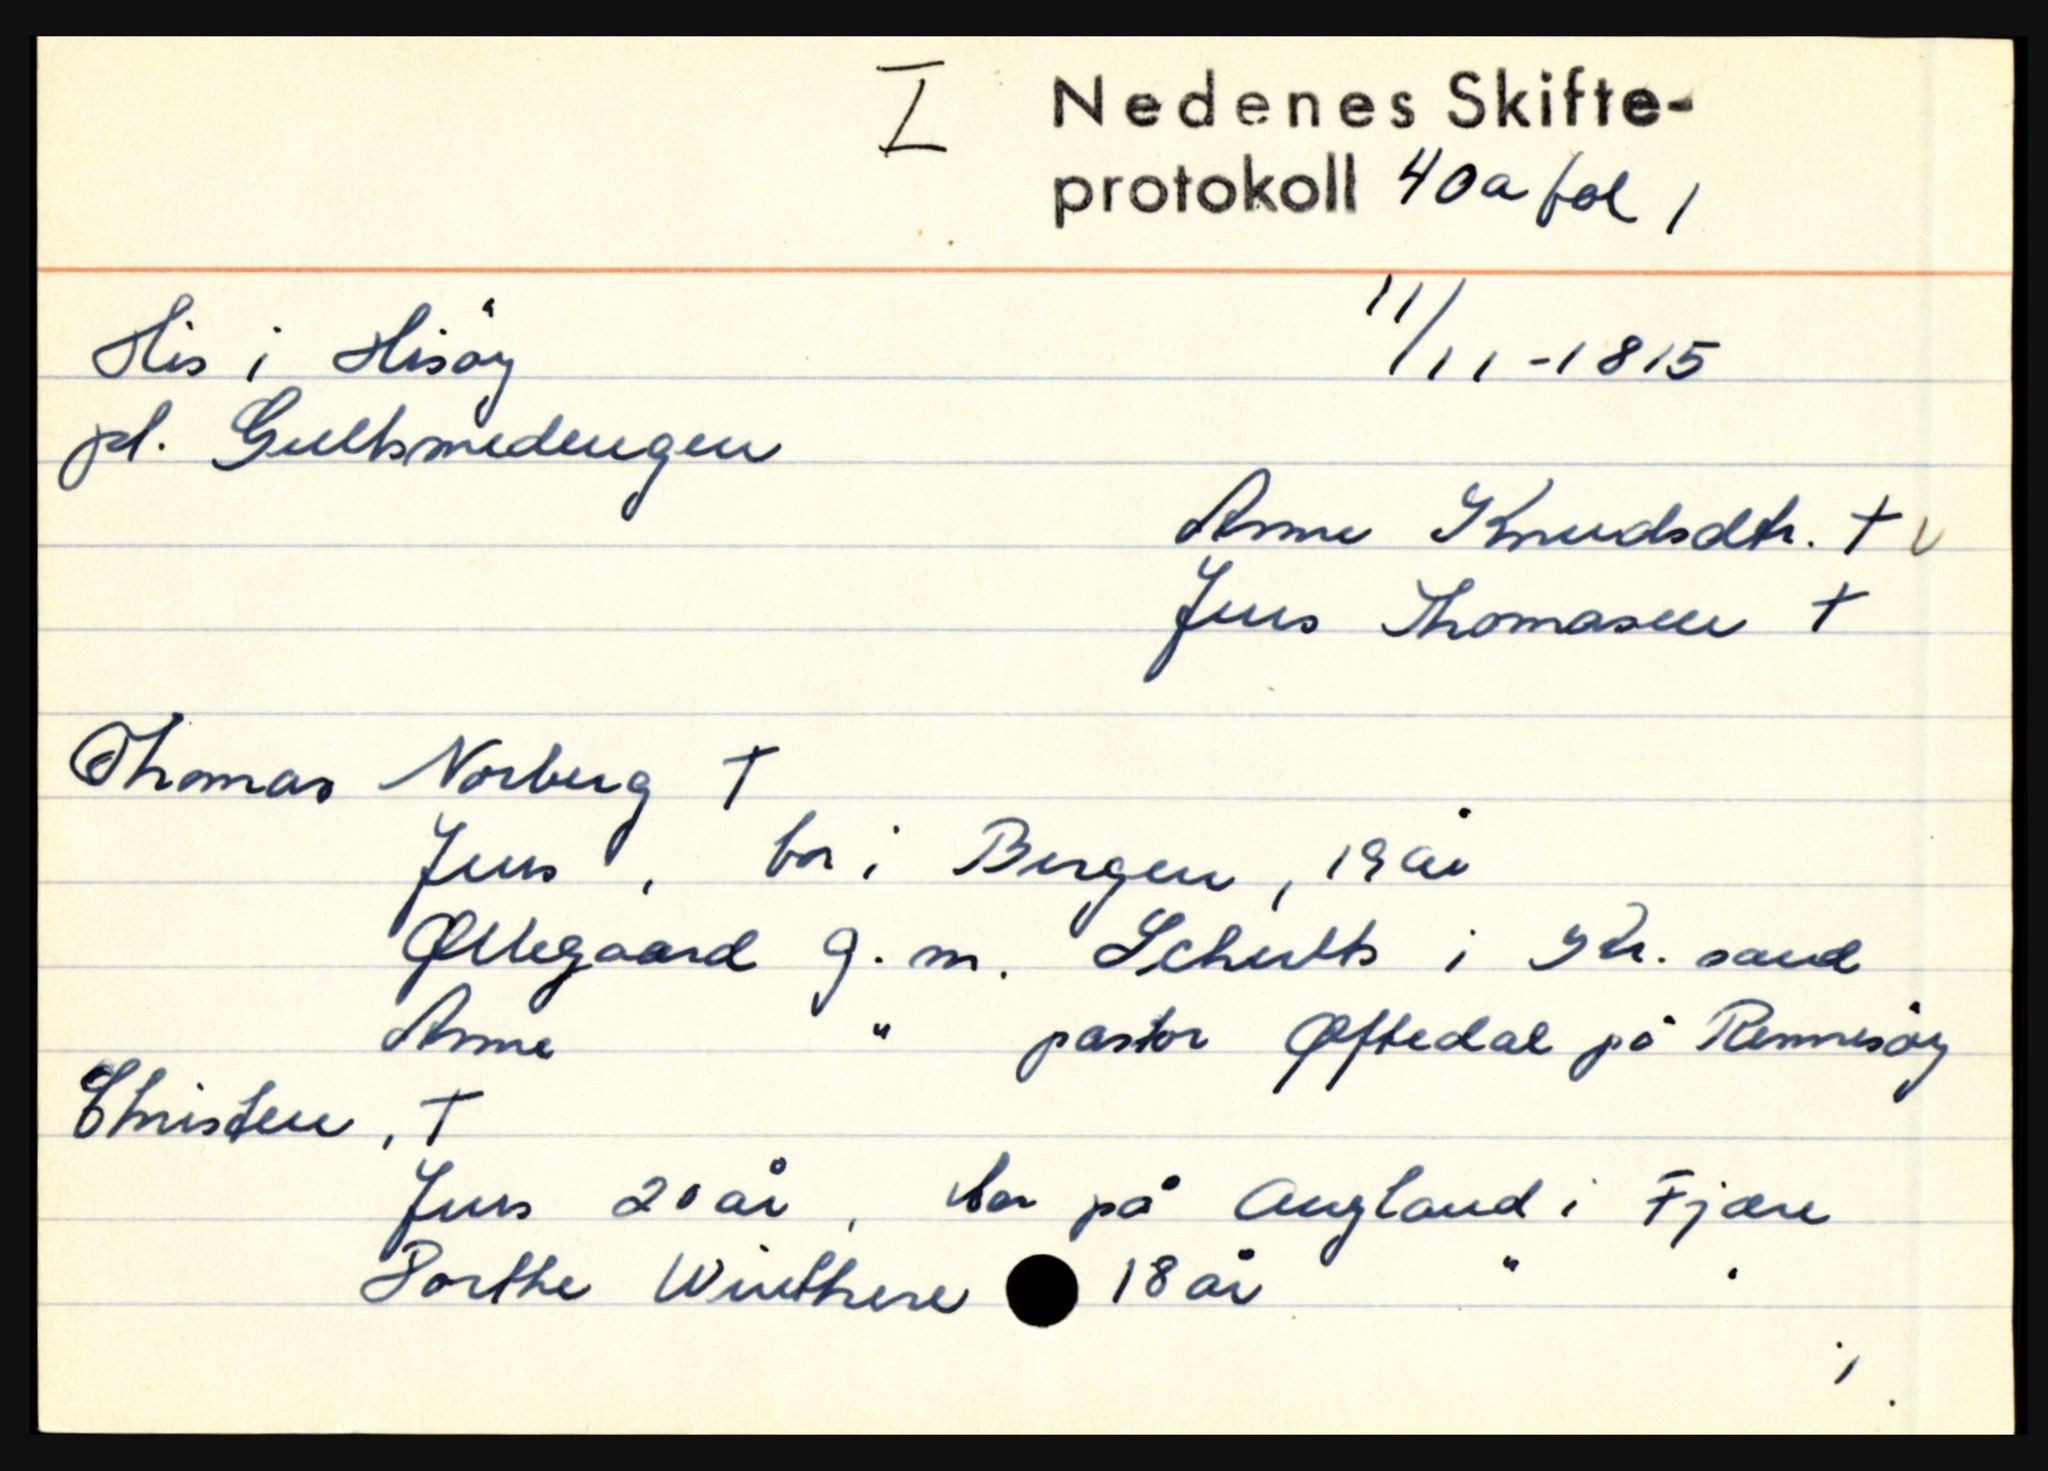 I Nedenes Skifte-
protokoll 40a fol 1
His i Hisöy 11/11-1815
pl. Gultsmedengen
Anne Knudsdtr. † v
Jens Thomasen †
Thomas Norberg †
Jens , bor i Bergen, 19 år
Øllegaard g. m. Schults i Kr. sand
Anne " pastor Øftedal på Rennesøy
Christen, †
Jens 20 år, bor på Augland i Fjære
Dorthe Winthere 18 år "